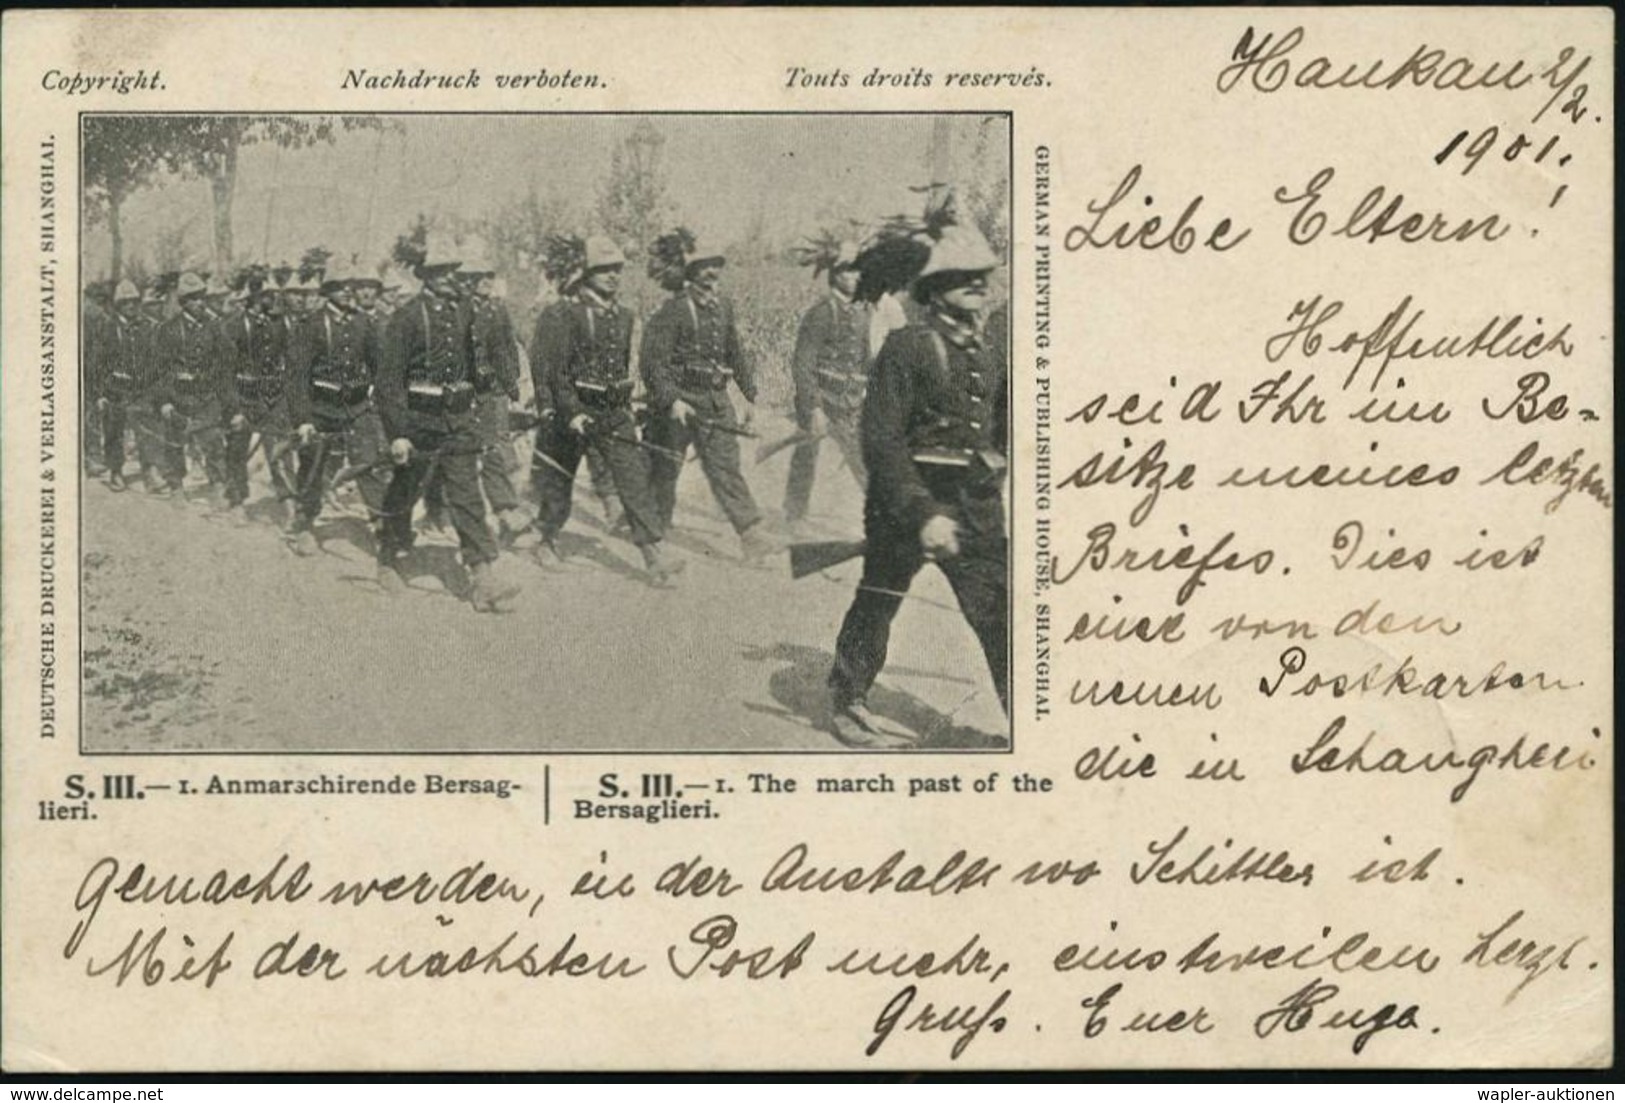 Copyright. Nachdruck verboten. Touts droits reservés.
DEUTSCHE DRUCKEREI & VERLAGSANSTALT, SHANGHAI.
GERMAN PRINTING & PUBLISHING HOUSE, SHANGHAI.
S. III.— 1. Anmarschirende Bersag-
lieri.
S. III.—1. The march past of the
Bersaglieri.
Hankau 2/2.
1901.
Liebe Eltern!
Hoffentlich
seid Ihr im Be-
sitze meines letzten
Briefes. Dies ist
eine von den
neuen Postkarten
die in Schanghai
gemacht werden, in der Anstalt wo Schittler ist.
Mit der nächsten Post mehr, einstweilen herzl.
Gruß. Euer Hugo.
www.delcampe.net
wapler-auktionen